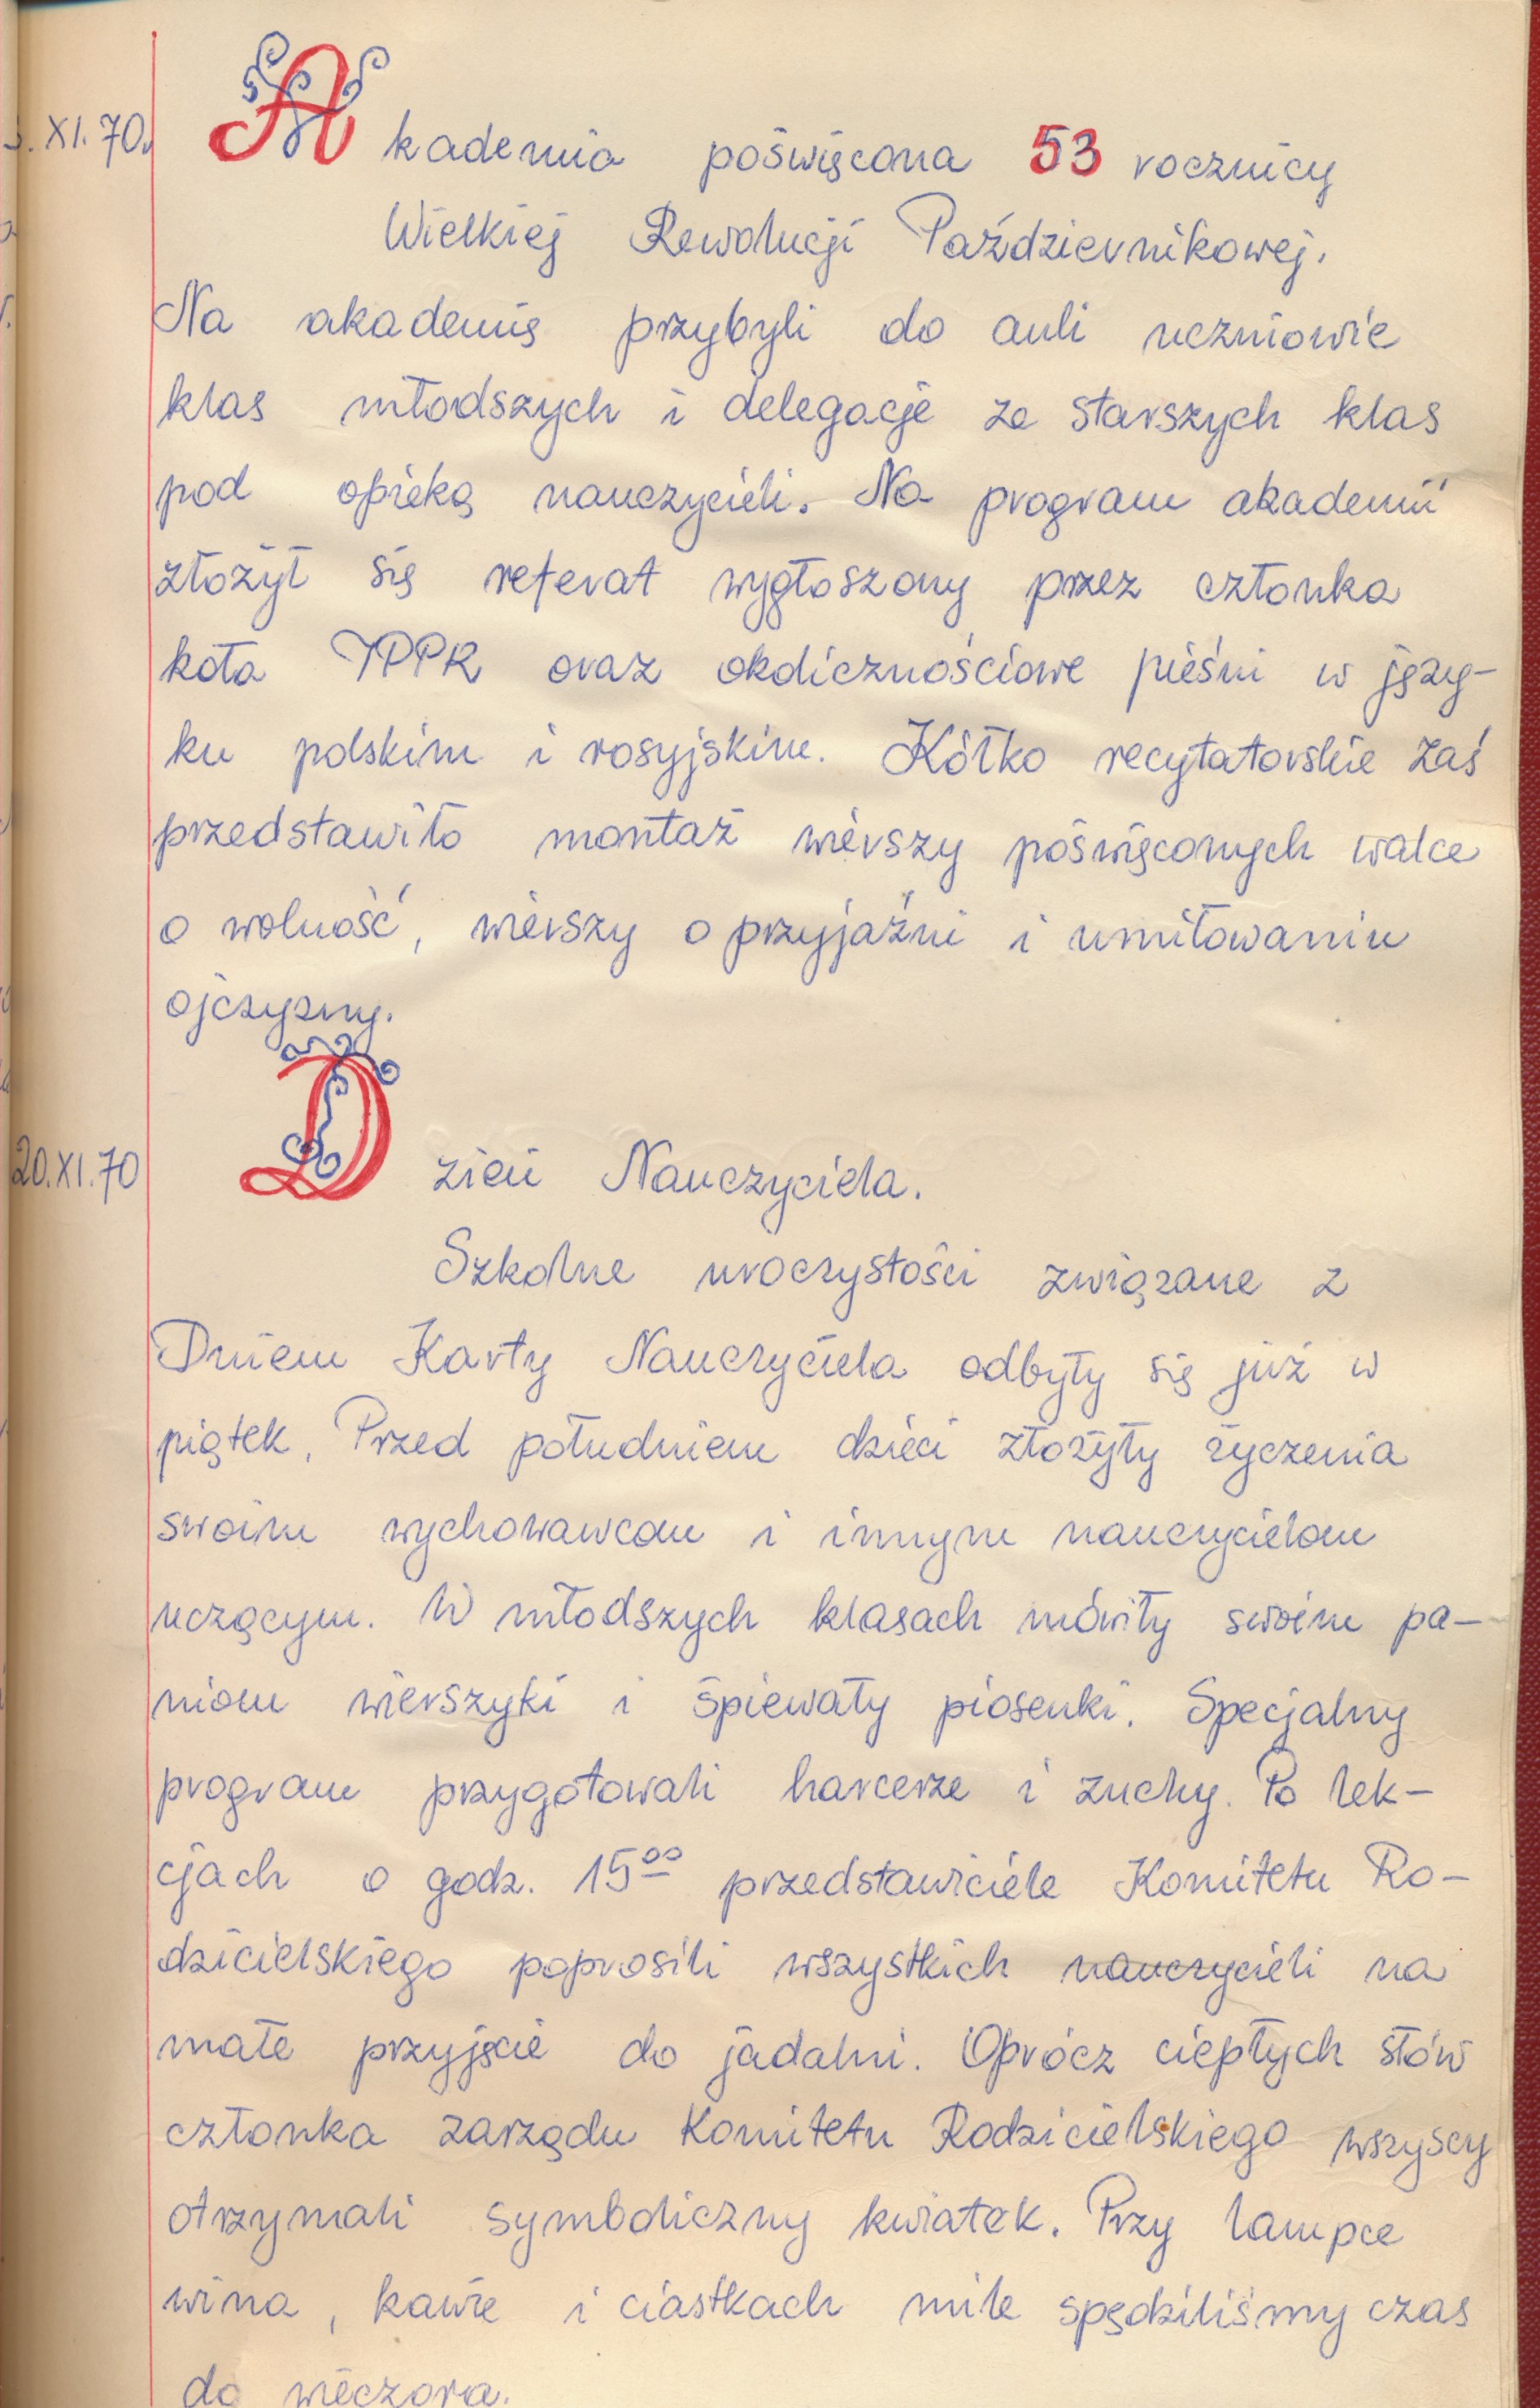 . XI. 70.
Akademia poświęcona 53 rocznicy
Wielkiej Rewolucji Październikowej.
Na akademię przybyli do auli uczniowie
klas młodszych i delegacje ze starszych klas
pod opieką nauczycieli. Na program akademii
złożył się referat wygłoszony przez członka
koła TPPR oraz okolicznościowe pieśni w języ-
ku polskim i rosyjskim. Kółko recytatorskie zaś
przedstawiło montaż wierszy poświęconych walce
o wolność, wierszy o przyjaźni i umiłowaniu
ojczyzny.
20.XI.70
Dzień Nauczyciela.
Szkolne uroczystości związane z
Dniem Karty Nauczyciela odbyły się już w
piątek. Przed południem dzieci złożyły życzenia
swoim wychowawcom i innym nauczycielom
uczącym. W młodszych klasach mówiły swoim pa-
niom wierszyki i śpiewały piosenki. Specjalny
program przygotowali harcerze i zuchy. Po lek-
cjach o godz. 15⁰⁰ przedstawiciele Komitetu Ro-
dzicielskiego poprosili wszystkich nauczycieli na
małe przyjęcie do jadalni. Oprócz ciepłych słów
członka zarządu Komitetu Rodzicielskiego wszyscy
otrzymali symboliczny kwiatek. Przy lampce
wina, kawie i ciastkach mile spędziliśmy czas
do wieczora.